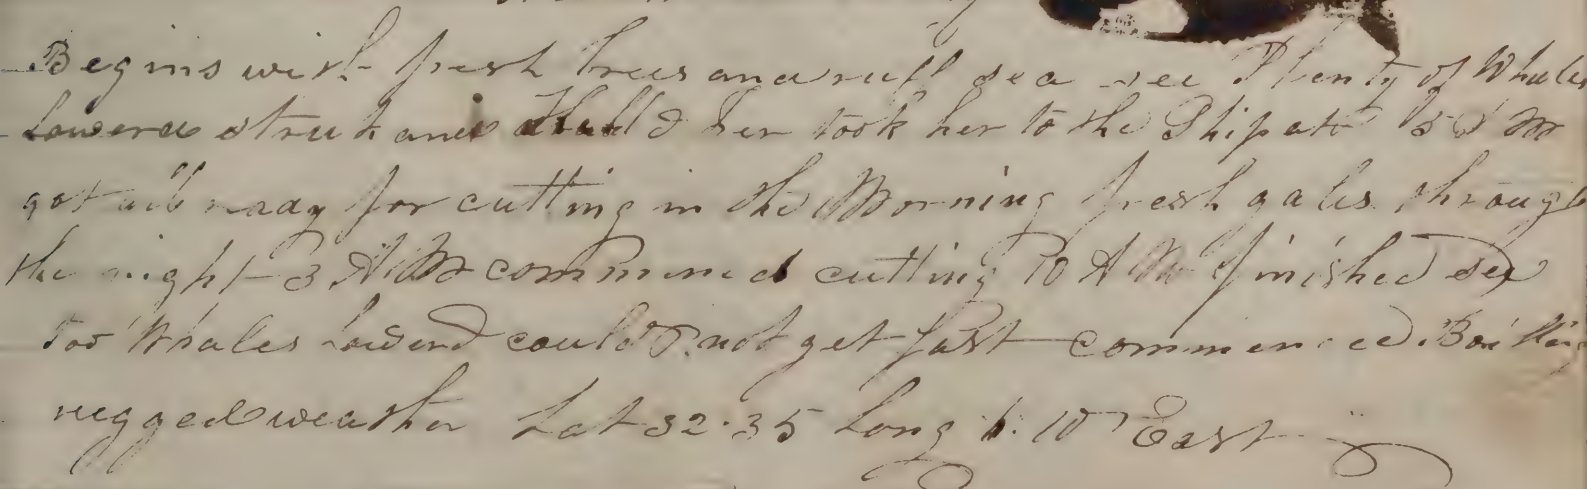 Begins with fresh brees and ruff sea see Plenty of Whales
Lowered struk and Killd her took her to the Ship at 5 P M
got all ready for cutting in the Morning fresh gales through
the night 3 A M commencd cutting 10 A M finished see
too Whales Lowerd could not get fast commenced Boiling
rugged weather Lat 32.35 Long 1.10 East